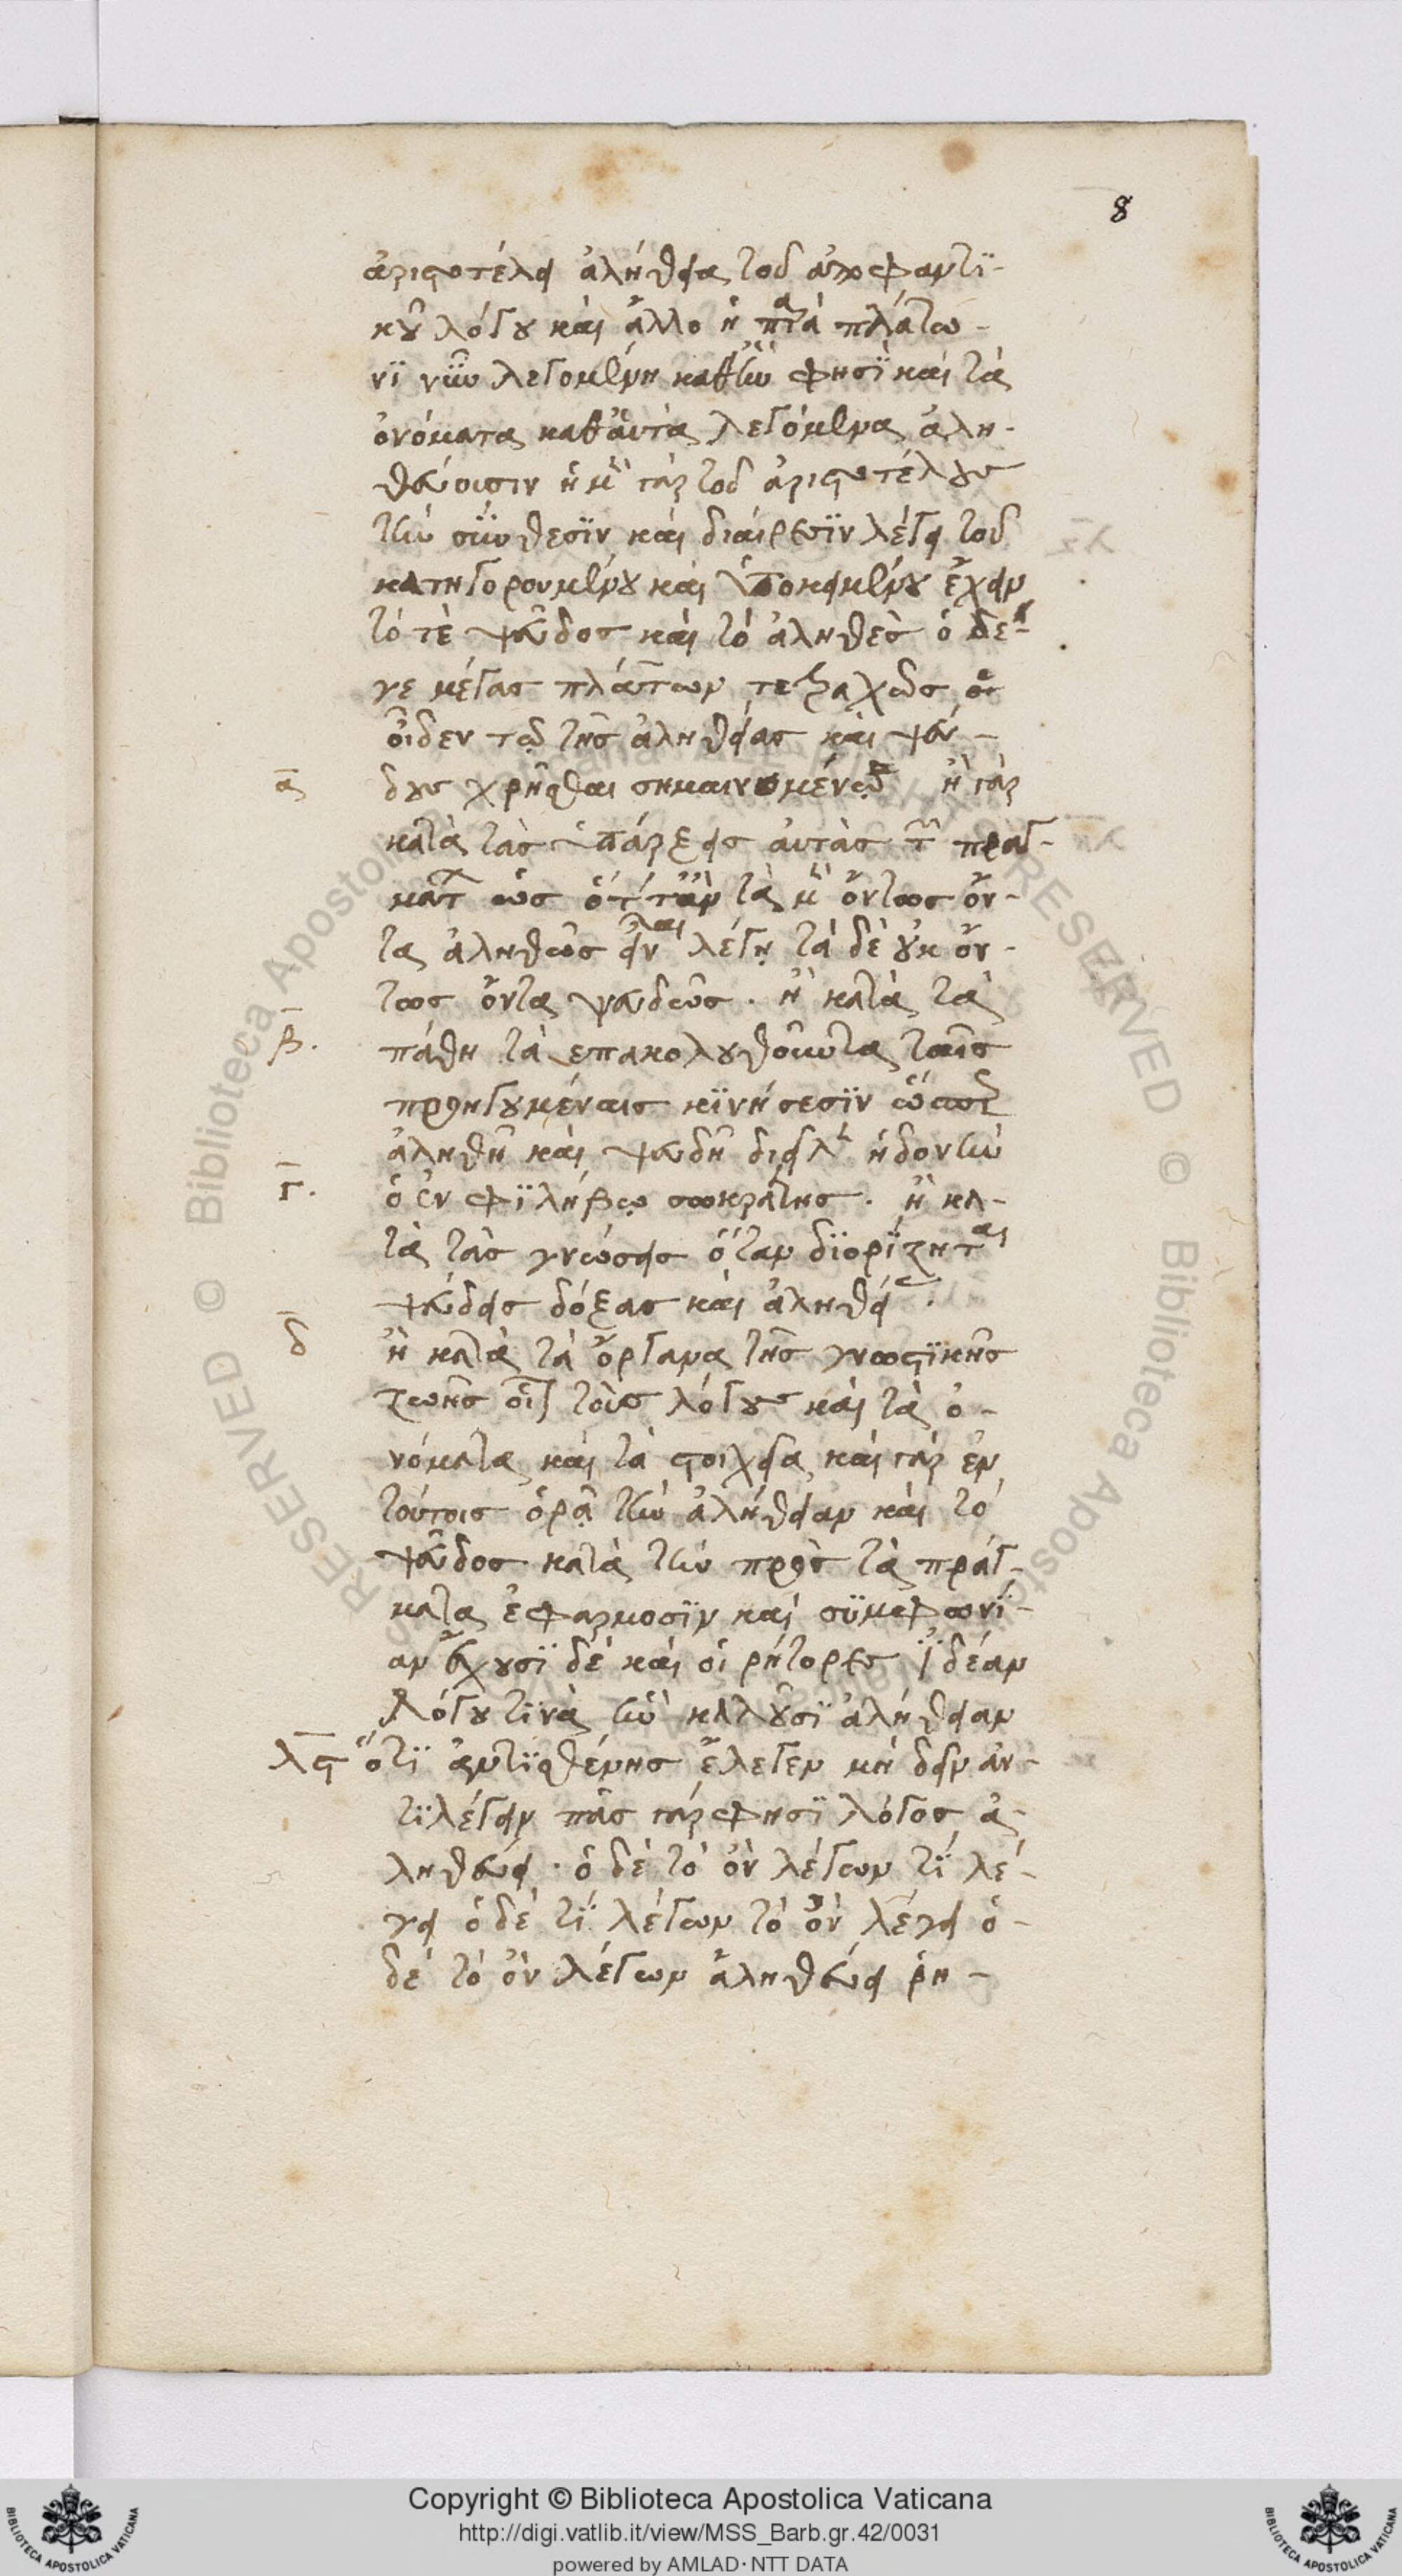 8
ἀριστοτέλει ἀλήθεια τοῦ ἀποφαντϊ-
κοῦ λόγου καὶ ἄλλο ἡ παρὰ πλάτω-
νϊ νῦν λεγομένη καθ' ἣν φησῒ καὶ τὰ
ὀνόματα καθ' ἀυτὰ λεγόμενα ἀλη-
θεύουσιν ἡ μὲν γὰρ τοῦ ἀριστοτέλους
τὴν σύνθεσϊν καὶ διαίρεσϊν λέγει τοῦ
κατηγορουμένου καὶ ὑποκειμένου ἔχειν
τό τὲ ψεῦδος καὶ τὸ ἀληθὲς ὁ δέ-
γε μέγας πλάτων τετραχῶς
οἶδεν τῷ τῆς ἀληθείας καὶ ψεύ-
α δους χρῆσθαι σημαινομένῳ ἢ γὰρ
κατὰ τὰς ὑπάρξεις ἀυτὰς τῶν πραγ-
μάτων ὡς ὅταν τὰ μὲν ὄντως ὄν-
τα ἀληθῶς εἶναι λέγῃ τὰ δὲ οὐκ ὄν-
τως ὄντα ψευδῶς . ἢ κατὰ τὰ
β. πάθη τὰ επακολουθοῦντα ταῖς
προηγουμέναις κϊνήσεσϊν ὥσπερ
ἀληθῆ καὶ ψευδῆ διεῖλεν ἡδονὴν
γ. ὁ ἐν φϊλήβῳ σωκράτης . ἢ κα-
τὰ τὰς γνώσεις ὅταν δϊορίζηται
ψεύδεις δόξας καὶ ἀληθεῖς .
δ ἢ κατὰ τὰ ὄργανα τῆς γνωστϊκῆς
ζωῆς οἷον τοὺς λόγους καὶ τὰ ὀ-
νόματα καὶ τὰ στοιχεῖα καὶ γὰρ ἐν
τούτοις ὁρᾷ τὴν ἀλήθειαν καὶ τὸ
ψεῦδος κατὰ τὴν πρὸς τὰ πράγ-
ματα ἐφαρμοσϊν καὶ συμφωνί-
αν ἔχουσϊ δὲ καὶ οἱ ρήτορες ἰδέαν
λόγου τϊνὰ ἣν καλοῦσϊ ἀλήθειαν
λς ὅτϊ ἀντϊσθένης ἔλεγεν μὴ δεῖν ἀν-
τϊλέγειν πᾶς γὰρ φησϊ λόγος ἀ-
ληθεύει · ὁ δὲ τὸ ὂν λέγων τῒ λέ-
γει ὁ δέ τῒ λέγων τὸ ὂν λέγει ὁ-
δὲ τὸ ὂν λέγων ἀληθεύει ρη-
Copyright © Biblioteca Apostolica Vaticana
http://digi.vatlib.it/view/MSS_Barb.gr.42/0031
powered by AMLAD · NTT DATA